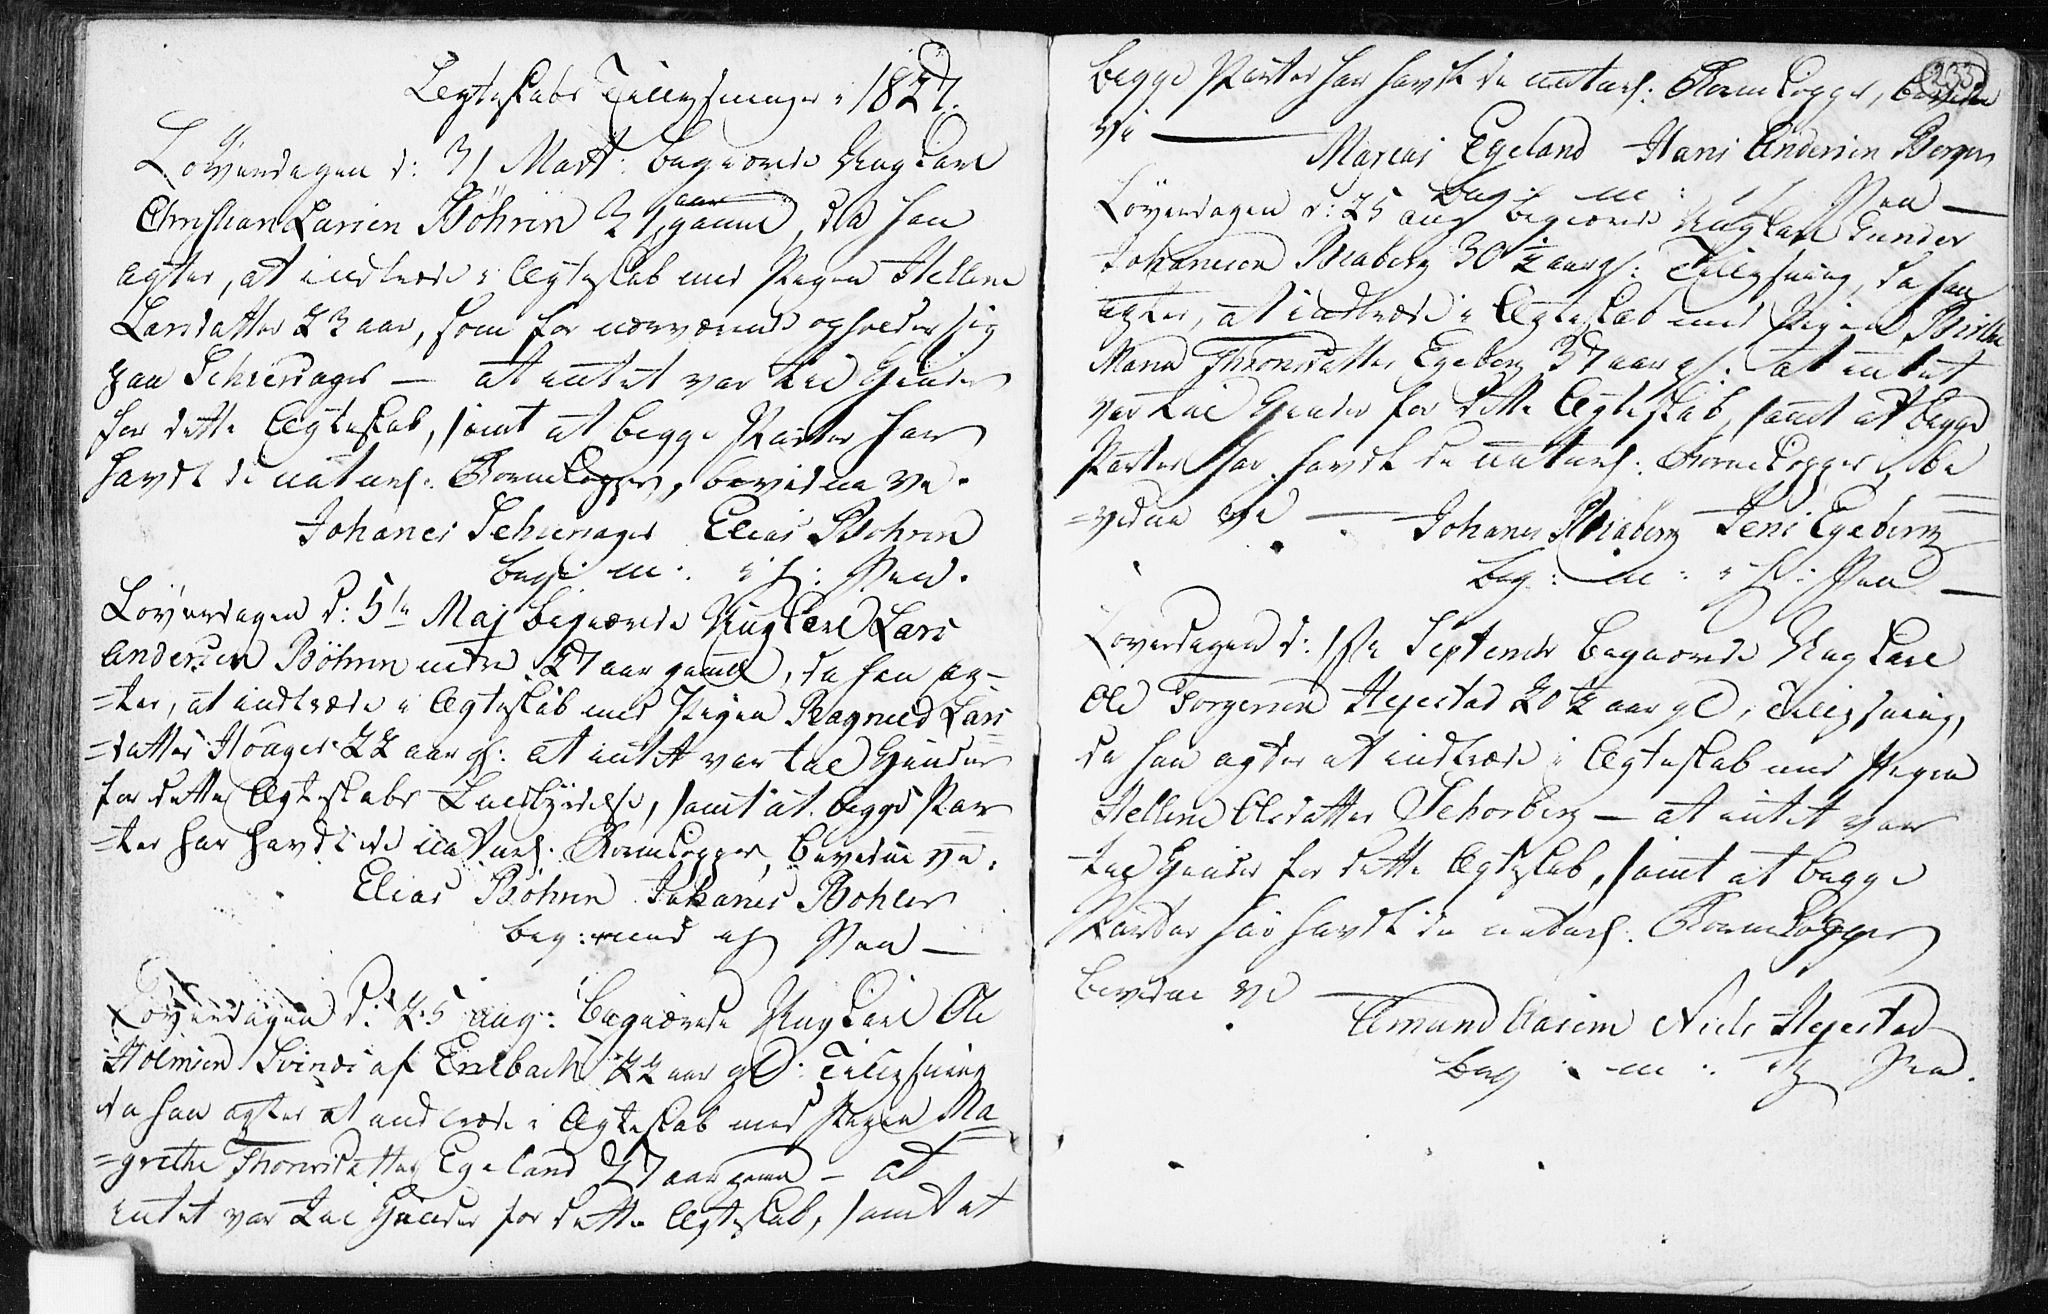 Ægteskabs Tillysninger i 1827.
Løverdagen d: 31 Mart: begiærede Ungkarl
Christian Larsen Böhren 21 aar gammel, da han
agter, at indtræde i Ægteskab med Pigen Hellene
Larsdatter 23 aar, som for nærværende opholder sig
paa Schiersager — at intet var til Hinder
for dette Ægteskab, samt at begge Parter har
havdt de naturl: Børnekopper, bevidne vi.
Johanes Schiersager Elias Böhren
beg: m: i h: Pen.
Løverdagen d: 5te Maj begiærede Ungkarl Lars
Andersen Böhren nedre 27 aar gammel, da han ag-
=ter, at indtræde i Ægteskab med Pigen Ragnild Lars
=datter Hönager 22 aar gl: at intet var til Hinder
for dette Ægteskabs Fuldbyrdelse, samt at begge Par
=ter har havdt de naturl. Børnekopper, bevidne vi.
Elias Böhren Johanes Bohler
beg: med i h Pen —
Løverdagen d: 25 aug: begiærede Ungkarl Ole
Holmsen Svinds af Enebach 22 aar gl: Tillysning
da han agter at indtræde i Ægteskab med Pigen Ma
=grethe Thorersdatter Egeland 27 aar gamel — at
intet var til Hinder for dette Ægteskab, samt at
233
begge Parter har havdt de naturl: Børnekopper, bevidne
vi — Marcus Egeland Hans Andersen Berger
beg: m: i h Pen —
Løverdagen d: 25 aug begiærede Ungkarl Gunder
Johannesen Braaberg 30 1/2 aar gl: Tillysning, da han
agter, at indtræde i Ægteskab med Pigen Birthe
Maria Thronsdatter Egeberg 37 aar gl: at intet
var til Hinder for dette Ægteskab, samt at begge
Parter har havdt de naturl: Børnekopper, be
=vidne vi — Johanes Braaberg Jens Egeberg
beg: m: i h: Pen —
Løverdagen d: 1ste September begiærede Ungkarl
Ole Torgersen Hejestad 20 1/2 aar gl, Tillysning,
da han agter at indtræde i Ægteskab med Pigen
Hellene Olsdatter Schorberg — at intet var
til Hinder for dette Ægteskab, samt at begge
Parter har havdt de naturl. Børnekopper
bevidne vi — Amund Aasen Niels Hejestad
beg: m: i h Pen.